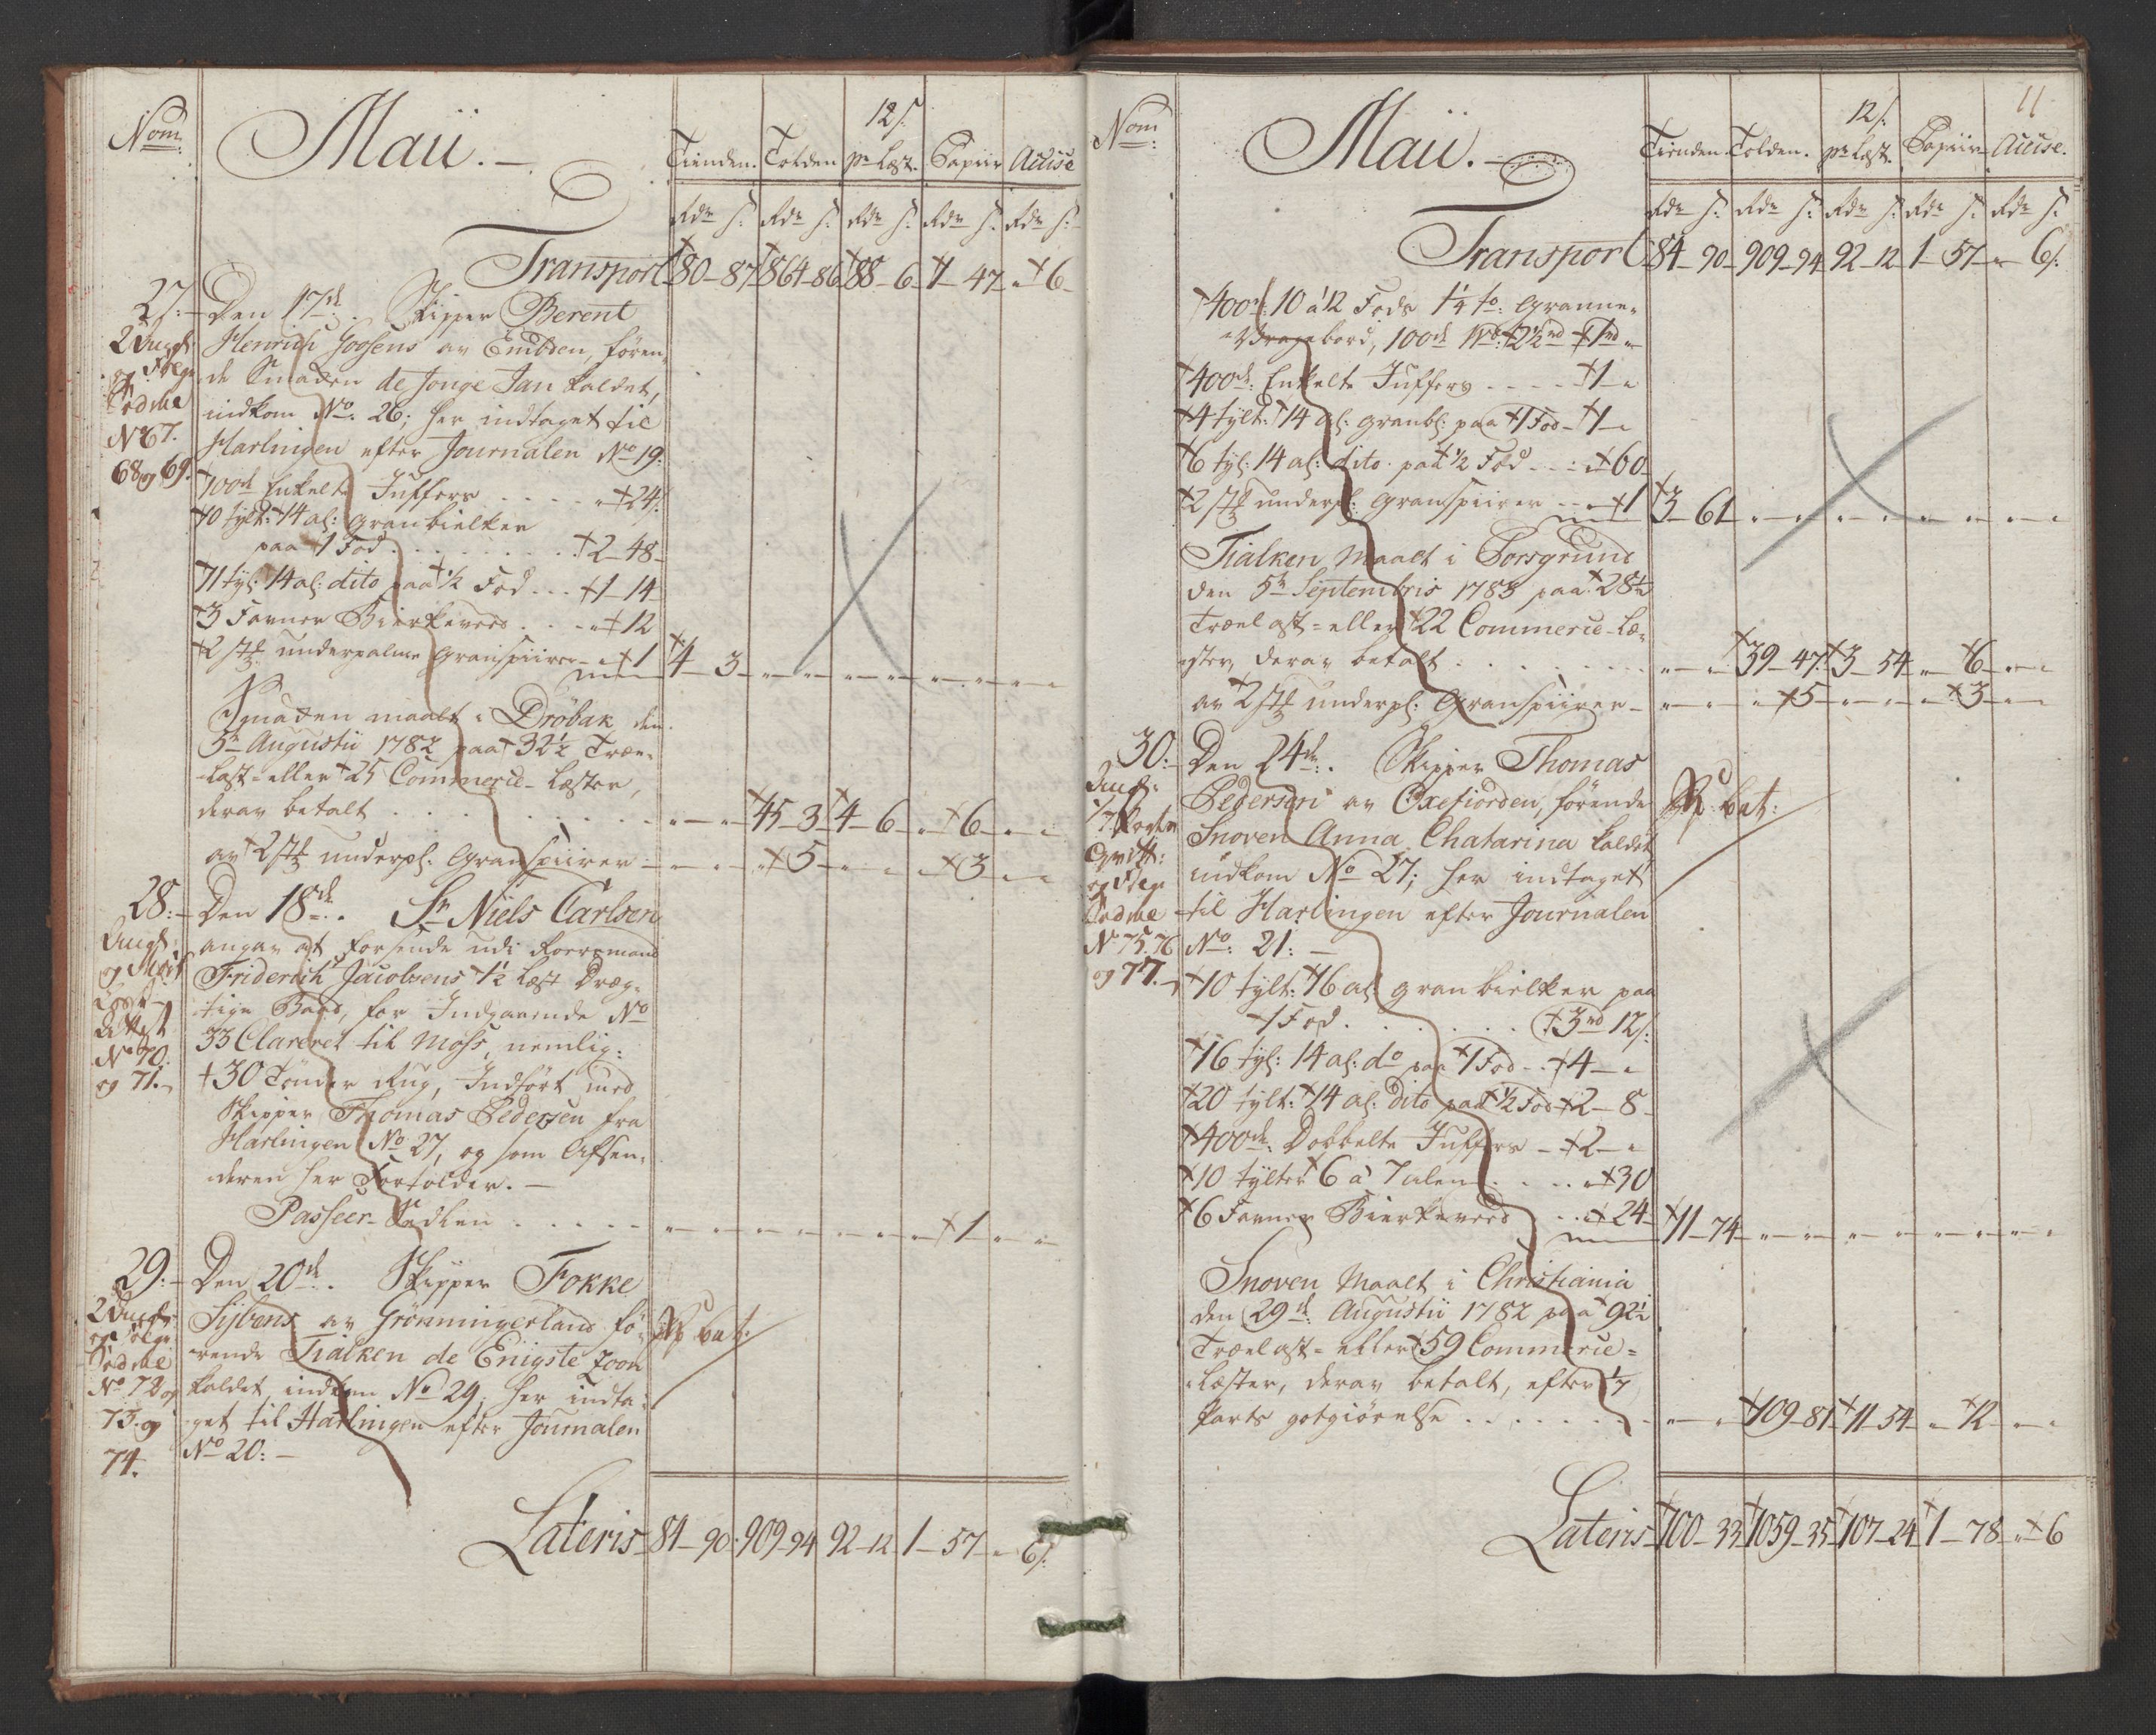 Nom: Maii.
12 s.
Tienden. Tolden pr Læst. Papiir Acciise
Rdr s. Rdr s. Rdr s. Rdr s. Rdr s.
Transport 80-87 864-86 88-6 1-47 " 6
27:- Den 17de. Skipper Berent
Henrich Goosens av Embden, føren-
de Smakken de Jonge Jan kaldet,
indkom No. 26; her indtaget til
Harlingen efter Journalen No 19.
No 67.
68 og 69.
700de Enkelte Juffers . . . . " 24 s.
10 tylt: 14 al: Granbielker
paa 1 Fod . . . . . . . 2-48-
11 tyl: 14 al: dito paa ½ Fod . . . 1-14
3 Favner Birkeveed . . . " 12
2 stk: underpalme Granspiirer - " 1 4-3
Smaken maalt i Drøbak den
5te Augustii 1782 paa 32½ Træ-
Læst- eller 25 Commerce-Læster,
derav betalt . . . . . . 45-3 4-6 " 6
av 2 stk underpl: Granspiirer " 5 " 3
28:- Den 18de. Sr Niels Carlsen
angav at forsende udi Roersmand
Friderich Jacobsens ½ Læst Dræg-
tige Baad, for Indgaaende No
33 Clareret til Moss, nemlig:
No 70.
og 71.
30 Tønder Rug, Indført med
Skipper Thomas Pedersen fra
Harlingen No 27, og som Afsen-
deren her Fortolder.-
Passeer-Sedlen . . . . . 1
29:- Den 20de. Skipper Fokke
Sijbens av Grönningerland fø-
rende Tialken de Enigste Zoon
kaldet, indkom No 29; her indta-
get til Harlingen efter Journalen
No 20:-
No 72 og
73. og
74.
Lateris 84-90. 909-94 92-12 1-57 " 6 s.
11
Nom: Maii.
12 s.
Tienden. Tolden. pr Læst. Papiir Acciise.
Rdr s. Rdr s. Rdr s. Rdr s. Rdr s.
Transport 84-90-909-94 92-12 1-57 " 6 s.
400de: 10 a 12 Fods 1¼ to: Granne-
Vragebord, 100de
400de: Enkelte Juffers . . . . 1-"
4 tylt: 14 al: Granbl: paa 1 Fod 1-"
6 tyl: 14 al: dito paa ½ Fod . . . " 60
2 stk underpl: Granspiirer . . . " 1 3-61
Tialken Maalt i Porsgrund
den 5te Septembris 1783 paa 28½
Trælast- eller 22 Commerce-Læ-
ster, derav betalt . . . . . . 39-47 3-54 " 6
av 2 stk underpl: Granspiirer - " 5 " 3
30:- Den 24de. Skipper Thomas
Pedersen av Oxefiorden, førende
Snoven Anna Chatarina kaldet
indkom No 27; her indtaget
til Harlingen efter Journalen
No: 21:-
No 75. 76
og 77.
10 tylt: 16 al: granbielker paa
1 Fod . . . . . . 3 rd 12 s.
16 tyl: 14 al: do paa 1 Fod . . 4-"
20 tylt: 14 al: dito paa ½ Fod 2-8-
400de: Dobbelte Juffers - 2-"
10 tylter 6 a 7 alen . . . . " 30
6 Favner Birkeveed . . " 24 11-74
Snoven Maalt i Christiania
den 29de: Augustii 1782 paa 92½
Trælast- eller 59 Commerce-
Læster, derav betalt, efter 1/7
Parts gotgiørelse . . . . . . 109-81 11-54 " 12
Lateris 100-33 1059-35 107-24 1-78 " 6